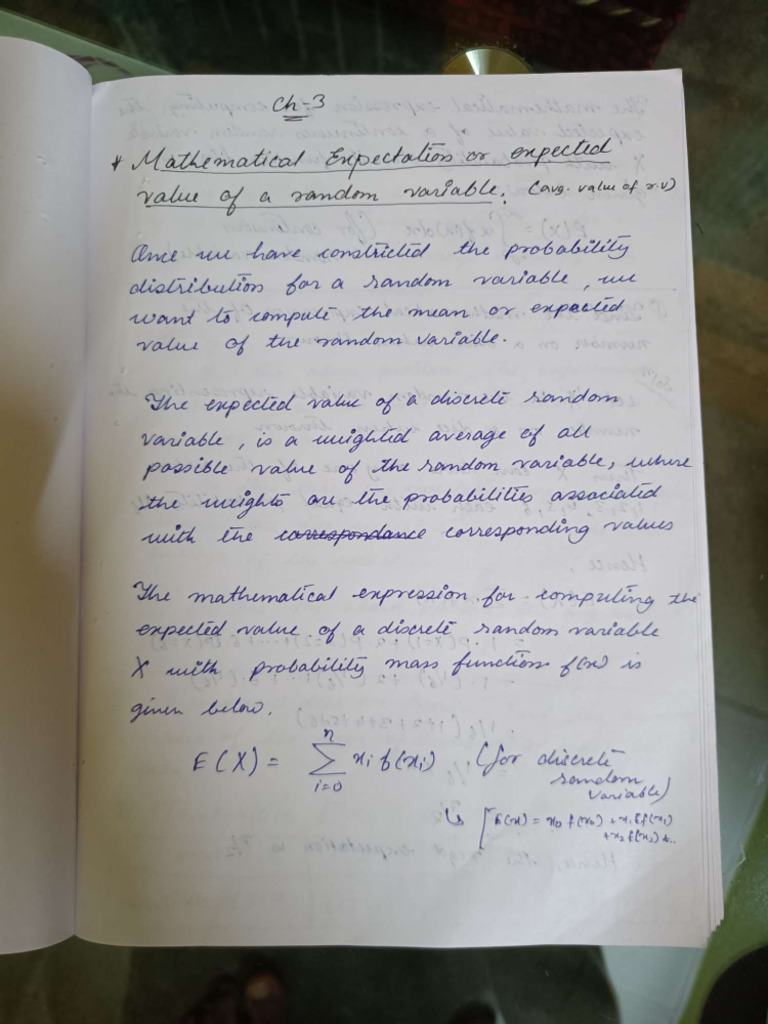 Ch-3
* Mathematical Expectation or expected
value of a random variable. (avg. value of r.v)
Once we have constricted the probability
distribution for a random variable, we
want to compute the mean or expected
value of the random variable.
The expected value of a discrete random
variable, is a weighted average of all
possible value of the random variable, where
the weights are the probabilities associated
with the correspondance corresponding values
The mathematical expression for computing the
expected value of a discrete random variable
X with probability mass function f(x) is
given below.
E(X) = n∑i=0 xi f(xi) (for discrete
random
variable)
↳ [E(x) = x0 f(x0) + x1 f(x1)
+x2 f(x2) +..